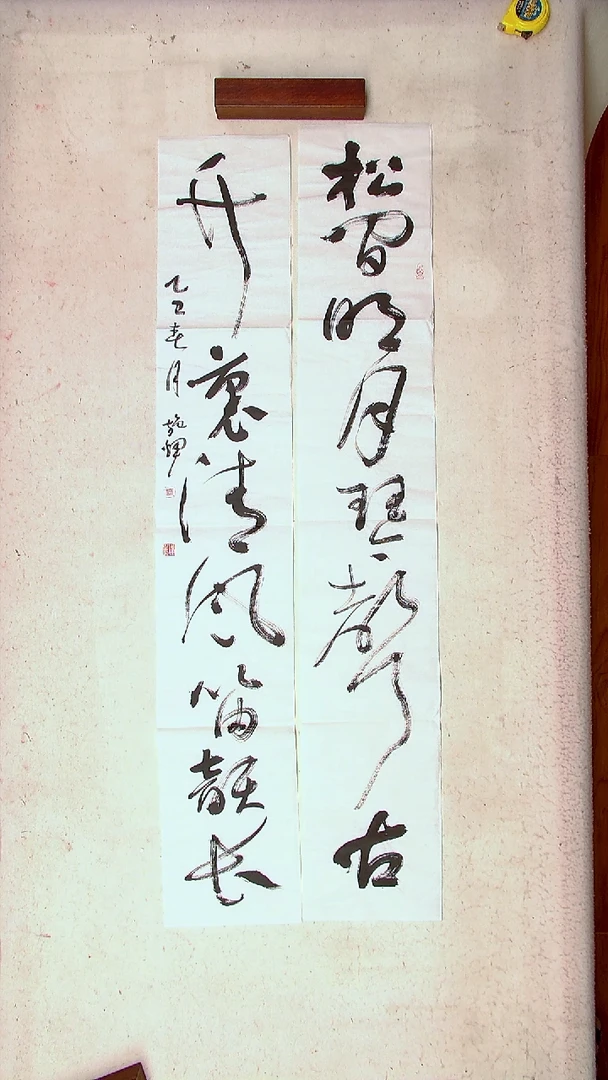 松間明月琴聲古
竹裏清風笛韻長
乙巳春月